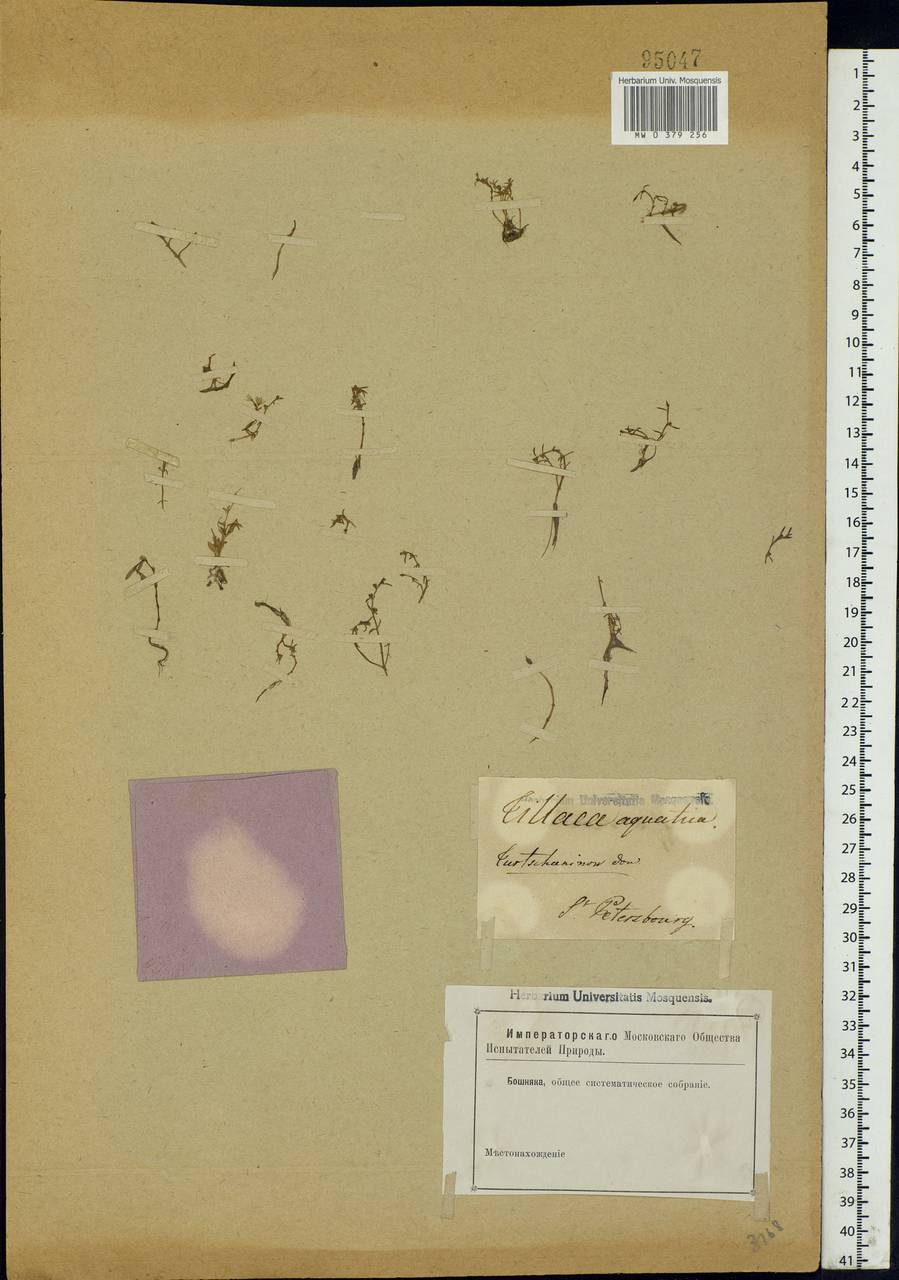 95047
Herbarium Univ. Mosquensis
MW 0 379 256
Herbarium Universitatis Mosquensis.
Tillaea aquatica.
Turtschaninow don.
St Petersbourg.
Herbarium Universitatis Mosquensis.
Императорскаго Московскаго Общества
Испытателей Природы.
Бошняка, общее систематическое собраніе.
Мѣстонахожденіе
3168
1
2
3
4
5
6
7
8
9
10
11
12
13
14
15
16
17
18
19
20
21
22
23
24
25
26
27
28
29
30
31
32
33
34
35
36
37
38
39
40
41